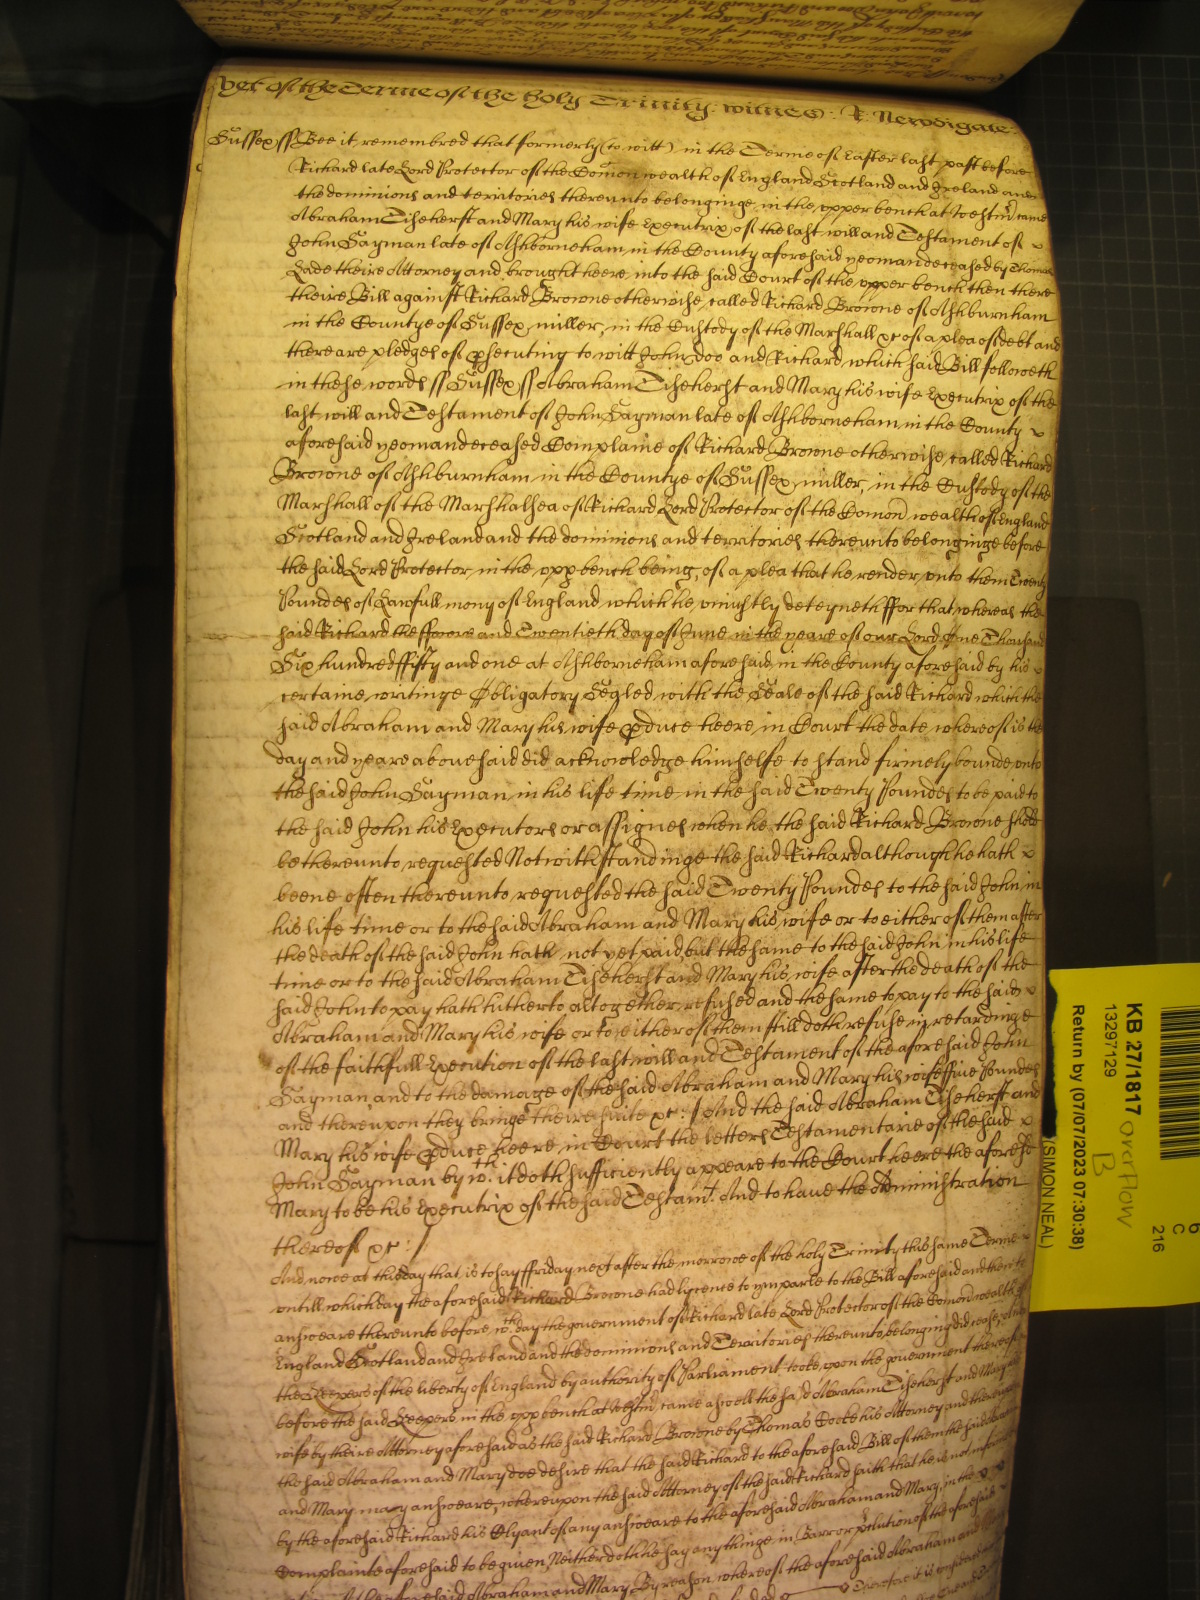 yet of the Terme of the holy Trinity. witnes: R: Newdigate:
Sussex ss Bee it remembred that formerly (to witt) in the Terme of Easter last past before
Richard late Lord Protector of the Comonwealth of England Scotland and Ireland and
the dominions and territories thereunto belonginge in the upper bench at Westmr came
Abraham Tisehurst and Mary his wife Executrix of the last will and Testament of
John Sayman late of Ashborneham in the County aforesaid yeoman deceased by Thomas
Lade theire Attorney and brought heere into the said Court of the upper bench then there
theire Bill against Richard Browne otherwise called Richard Browne of Ashburnham
in the Countye of Sussex miller, in the Custody of the Marshall &c of a plea of debt and
there are pledges of psecuting to witt John doo and Richard which said Bill followeth
in these words ss Sussex ss Abraham Tisehurst and Mary his wife Executrix of the
last will and Testament of John Sayman late of Ashborneham in the County
aforesaid yeoman deceased Complaine of Richard Browne otherwise called Richard
Browne of Ashburnham in the Countye of Sussex miller, in the Custody of the
Marshall of the Marshalsea of Richard Lord Protector of the Comon wealth of England
Scotland and Ireland and the dominions and territories thereunto belonginge before
the said Lord Protector in the upp bench being, of a plea that he render unto them Twenty
Poundes of Lawfull mony of England which he uniustly deteyneth ffor that whereas the
said Richard the ffoure and Twentieth day of June in the yeare of our Lord One Thousand
Six hundred ffifty and one at Ashborneham aforesaid in the County aforesaid by his
certaine writinge Obligatory Sealed with the Seale of the said Richard which the
said Abraham and Mary his wife pduce heere in Court the date whereof is the
day and yeare abovesaid did acknowledge himselfe to stand firmely bounde unto
the said John Sayman in his life time in the said Twenty Poundes to be paid to
the said John his Executors or assignes when he the said Richard Browne should
be thereunto requested Notwithstandinge the said Richard although he hath
beene often thereunto requested the said Twenty Poundes to the said John in
his life time or to the said Abraham and Mary his wife or to either of them after
the death of the said John hath not yet paid, but the same to the said John in his life
time or to the said Abraham Tisehurst and Mary his wife after the death of the
said John to pay hath hitherto altogether refused and the same to pay to the said
Abraham and Mary his wife or to either of them still doth refuse in retardinge
of the faithfull Execution of the last will and Testament of the aforesaid John
Sayman and to the damage of the said Abraham and Mary his wife ffive Poundes
and thereupon they bringe theire suite &c: / And the said Abraham Tisehurst and
Mary his wife pduce heere in Court the letters Testamentarie of the said
John Sayman by wch it doth sufficiently appeare to the Court heere the aforesd
Mary to be his Executrix of the said Testamt. And to have the Administration
thereof &c: /
And nowe at this day that is to say ffriday next after the morrowe of the holy Trinity this same Terme
untill which day the aforesaid Richard Browne had lycence to imparle to the Bill aforesaid and then to
answeare thereunto before wch day the government of Richard late Lord Protector of the Comon wealth of
England Scotland and Ireland and the dominions and Territories thereunto belonging did cease
the Keepers of the liberty of England by authority of Parliament tooke upon the government thereof
before the said Keepers in the upp bench at Westmr came aswell the said Abraham Tisehurst and Mary his
wife by theire Attorney aforesaid as the said Richard Browne by Thomas Cooke his Attorney and thereupon
the said Abraham and Mary doe desire that the said Richard to the aforesaid Bill of them the said Abraham
and Mary may answeare, whereupon the said Attorney of the said Richard saith that he is not informed
by the aforesaid Richard his Clyant of any answeare to the aforesaid Abraham and Mary in the
Complainte aforesaid to be given, Neither doth he say anythinge in Barr or pclution of the aforesaid
aforesaid Abraham and Mary By reason whereof the aforesaid Abraham and
Therefore it is considered
KB 27/1817 overflow
B
13297129
Return by (07/07/2023 07:30:38)
(SIMON NEAL)
6
C
216